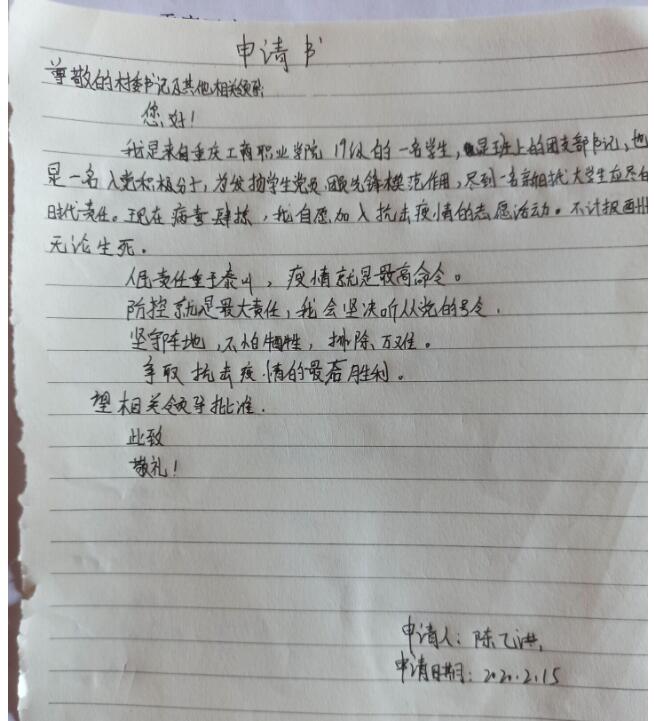 申请书
尊敬的村委书记及其他相关领导:
您好!
我是来自重庆工商职业学院19级的一名学生,是班上的团支部书记,也
是一名入党积极分子,为发扬学生党员先锋模范作用,尽到一名新时代大学生应尽的
时代责任。现在病毒肆掠,我自愿加入抗击疫情的志愿活动。不计报酬
无论生死。
人民责任重于泰山,疫情就是最高命令。
防控就是最大责任,我会坚决听从党的号令.
坚守阵地,不怕牺牲,排除万难。
争取抗击疫情的最后胜利。
望相关领导批准.
此致
敬礼!
申请人:陈乙洪
申请日期:2020.2.15